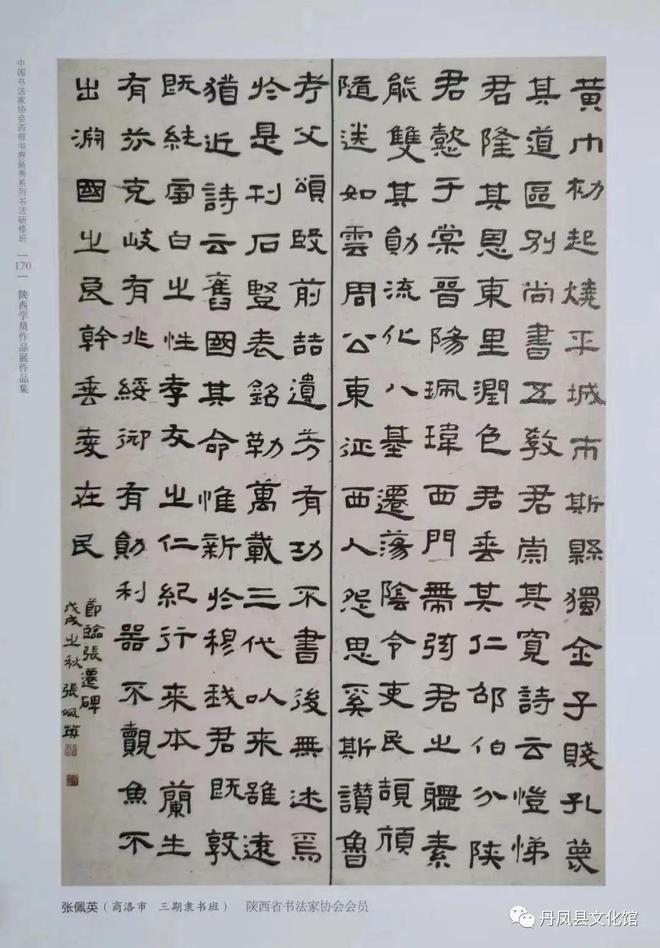 黃巾初起燒平城市斯縣獨全子賤孔蔑
其道區別尚書五教君崇其寬詩云愷悌
君隆其恩東里潤色君垂其仁邵伯分陝
君懿于棠晉陽珮瑋西門帶弦君之體素
能雙其勛流化八基遷蕩陰令吏民頡頏
隨送如雲周公東征西人怨思奚斯讚魯
考父頌殷前喆遺芳有功不書後無述焉
於是刊石豎表銘勒萬載三代以來雖遠
猶近詩云舊國其命惟新於穆我君既敦
既純雪白之性孝友之仁紀行來本蘭生
有芬克岐有兆綏御有勛利器不覿魚不
出淵國之良幹垂愛在民
節臨張遷碑
戊戌之秋 張佩英
中国书法家协会西部书界新秀系列书法研修班
170
陕西学员作品展作品集
张佩英(商洛市 三期隶书班) 陕西省书法家协会会员
丹凤县文化馆